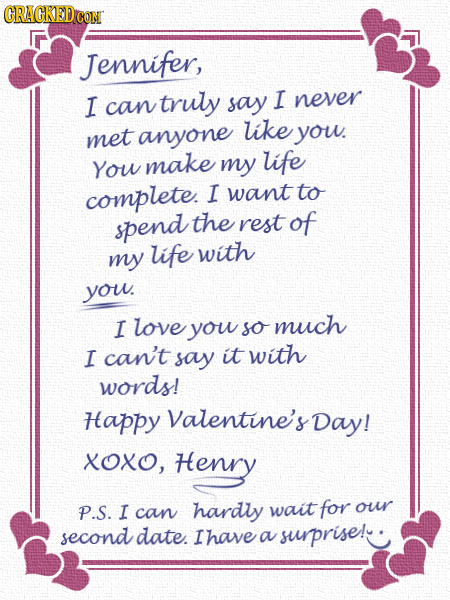 CRACKED.COM
Jennifer,
I can truly say I never
met anyone like you.
You make my life
complete. I want to
spend the rest of
my life with
you.
I love you so much
I can't say it with
words!
Happy Valentine's Day!
XOXO, Henry
P.S. I can hardly wait for our
second date. I have a surprise!